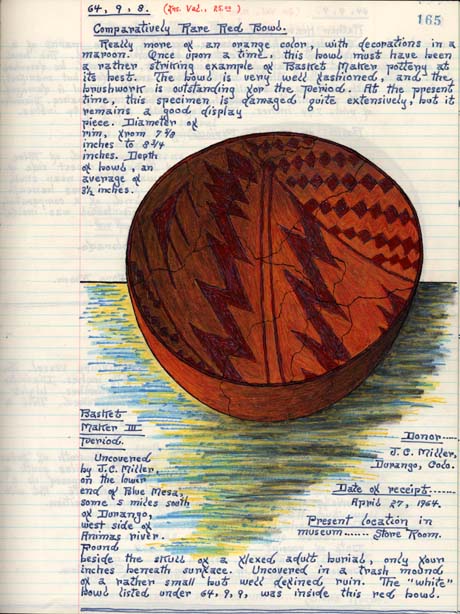 64, 9, 8. (Ins. Val., 25.00)
165
Comparatively Rare Red Bowl.
Really more of an orange color, with decorations in a
maroon. Once upon a time, this bowl must have been
a rather striking example of Basket Maker pottery at
its best. The bowl is very well fashioned, and the
brushwork is outstanding for the period. At the present
time, this specimen is damaged quite extensively, but it
remains a good display
piece. Diameter of
rim, from 7 7/8
inches to 8 3/4
inches. Depth
of bowl, an
average of
3 1/2 inches.
Basket
Maker III
period.
Uncovered
by J.C. Miller,
on the lower
end of Blue Mesa,
some 5 miles south
of Durango,
west side of
Animas river.
Found
beside the skull of a flexed adult burial, only four
inches beneath surface. Uncovered in a trash mound
of a rather small but well defined ruin. The "white"
bowl listed under 64, 9, 9, was inside this red bowl.
Donor-----
J. C. Miller,
Durango, Colo.
Date of receipt-----
April 27, 1964.
Present location in
museum------ Store Room.